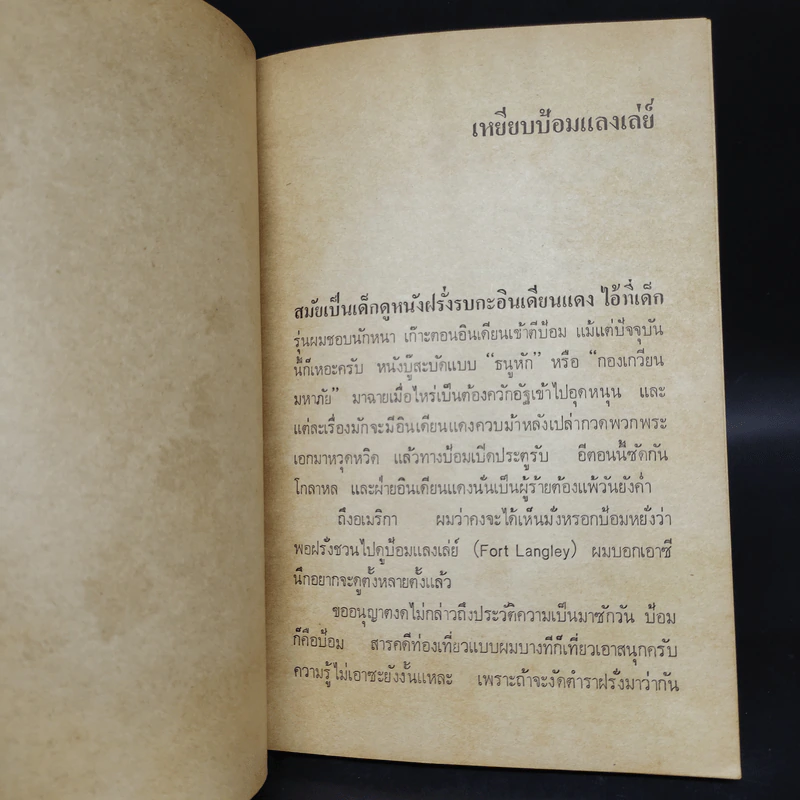 เหยียบป้อมแลงเล่ย์
สมัยเป็นเด็กดูหนังฝรั่งรบกะอินเดียนแดง ไอ้ที่เด็ก
รุ่นผมชอบนักหนา เก๊าะตอนอินเดียนเข้าตีป้อม แม้แต่ปัจจุบัน
นี้ก็เหอะครับ หนังบู๊สะบัดแบบ “ธนูหัก” หรือ “กองเกวียน
มหาภัย” มาฉายเมื่อไหร่เป็นต้องควักอัฐเข้าไปอุดหนุน และ
แต่ละเรื่องมักจะมีอินเดียนแดงควบม้าหลังเปล่ากวดพวกพระ
เอกมาหวุดหวิด แล้วทางป้อมเปิดประตูรับ อีตอนนี้ซัดกัน
โกลาหล และฝ่ายอินเดียนแดงนั่นเป็นผู้ร้ายต้องแพ้วันยังค่ำ
ถึงอเมริกา ผมว่าคงจะได้เห็นมั่งหรอกป้อมหยั่งว่า
พอฝรั่งชวนไปดูป้อมแลงเล่ย์ (Fort Langley) ผมบอกเอาซี
นึกอยากจะดูตั้งหลายตั้งแล้ว
ขออนุญาตงดไม่กล่าวถึงประวัติความเป็นมาซักวัน ป้อม
ก็คือป้อม สารคดีท่องเที่ยวแบบผมบางทีก็เที่ยวเอาสนุกครับ
ความรู้ไม่เอาซะยังงั้นแหละ เพราะถ้าจะงัดตำราฝรั่งมาว่ากัน